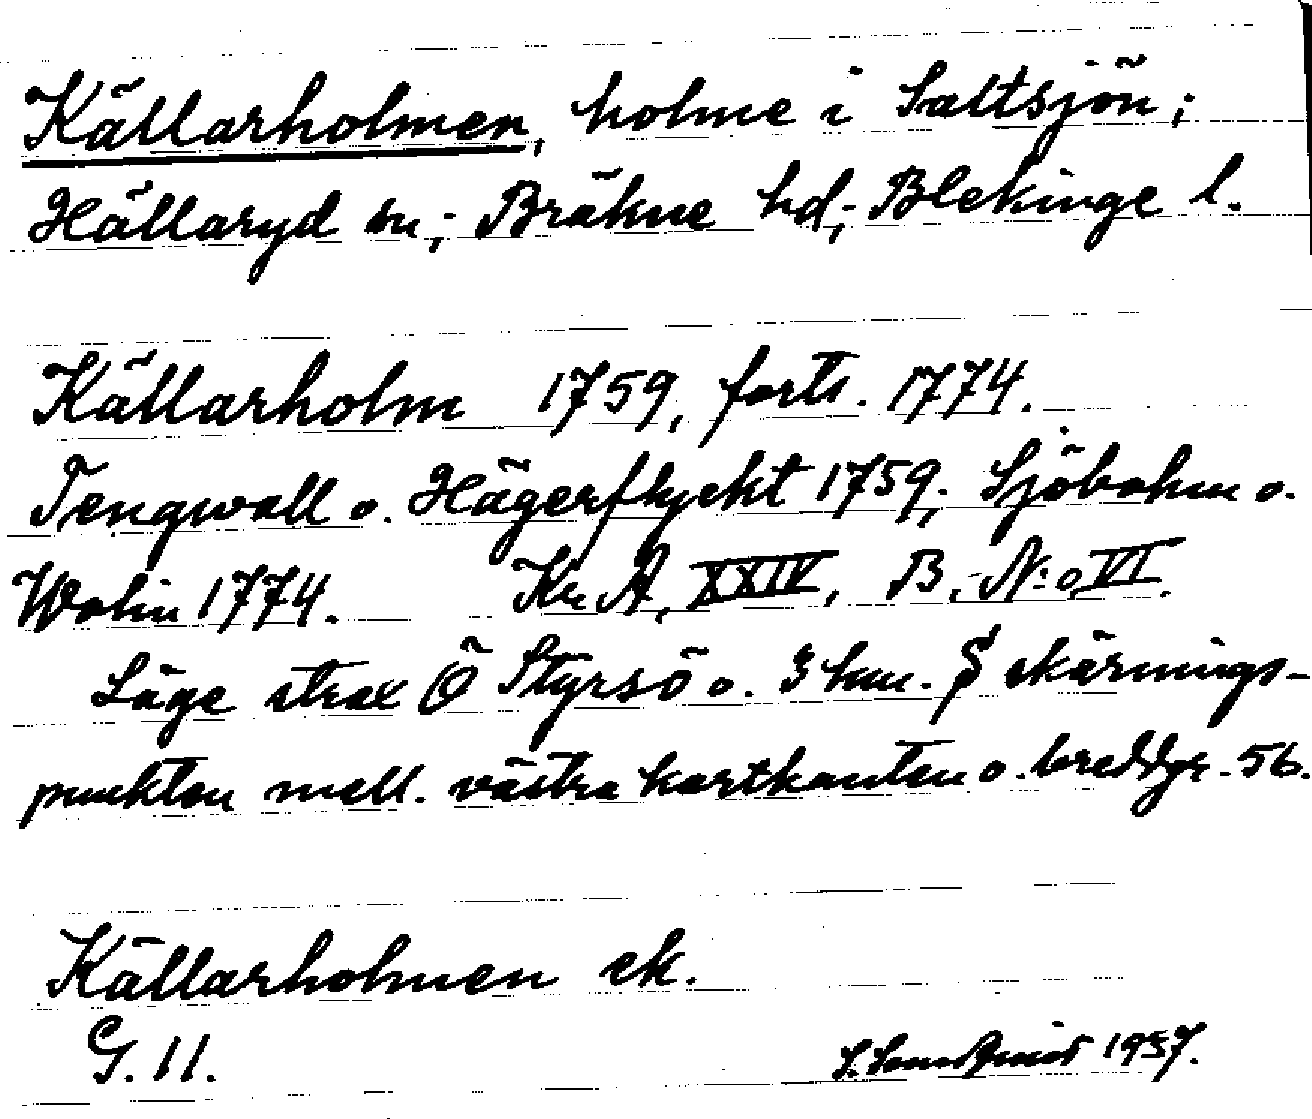 Källarholmen, holme i Saltsjön;
Hällaryd sn; Bräkne hd; Blekinge l.
Källarholm 1759, forts. 1774.
Tengwall o. Hägerflyckt 1759; Sjöbohm o.
Wolin 1774. Kr. A, XXIV, B, N:o VI.
Läge strax Ö Styrsö o. 3 km. S skärnings-
punkten mell. västra kartkanten o. breddgr. 56.
Källarholmen ek.
G. 11.
1957.